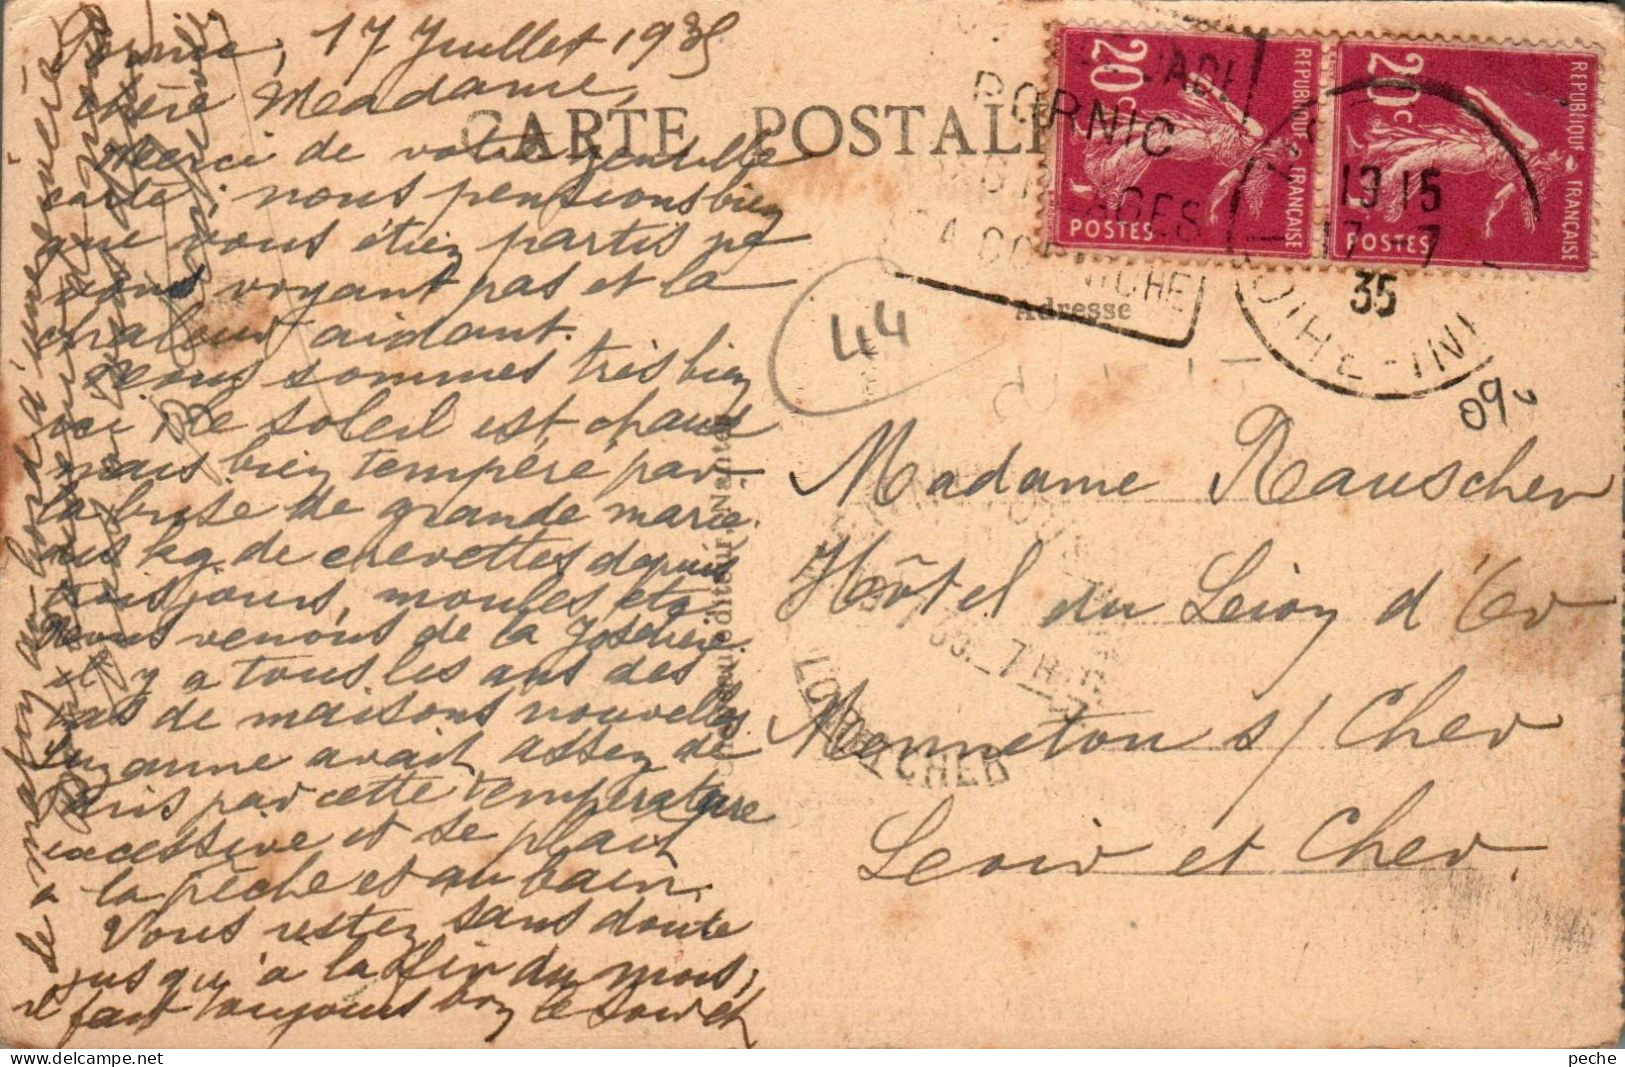 Pornic, 17 Juillet 1935
chère Madame,
CARTE POSTALE
Merci de votre gentille
carte; nous pensions bien
que vous étiez partis ne
vous voyant pas et la
chaleur aidant.
Nous sommes très bien
ici, le soleil est chaud
mais bien tempéré par
la brise de grande marée
des kg. de crevettes depuis
trois jours, moules, etc.
Nous venons de la Joselière
il y a tous les ans des
tas de maisons nouvelles
Suzanne avait assez de
Paris par cette température
excessive et se plait
à la pêche et au bain.
Vous restez sans doute
jusqu'à la fin du mois,
il fait toujours bon le soir et
le matin au bord d'une rivière
44
Adresse
Madame Rauscher
Hôtel du Lion d'Or
Menneton s/ Cher
Loir et Cher.
20c
REPUBLIQUE FRANÇAISE
POSTES
20c
REPUBLIQUE FRANÇAISE
POSTES
PORNIC
PLAGES
LA CORNICHE
19 15
17 -7
35
LOIRE-INF
LOIR-ET-CHER
peche